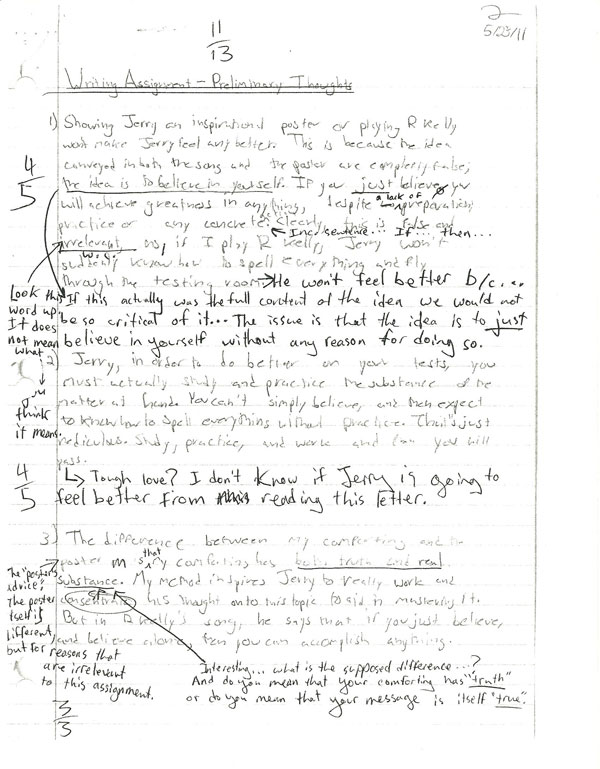 2
5/23/11
11
13
Writing Assignment - Preliminary Thoughts
1) Showing Jerry an inspirational poster or playing R Kelly
won't make Jerry feel any better. This is because the idea
conveyed in both the song and the poster are completely false;
4
5
the idea is to believe in yourself. If you just believe, you
will achieve greatness in anything, despite a lack of preparation,
practice or any concrete Clearly, this is false and
← Inc. sentence... If... then...
irrelevant, no, if I play R Kelly, Jerry won't
suddenly know how to spell everything and fly
w.c.
through the testing room.
→ He won't feel better b/c...
Look this
word up.
It does
not mean
what
you
think
it means.
If this actually was the full content of the idea we would not
be so critical of it... The issue is that the idea is to just
believe in yourself without any reason for doing so.
2) Jerry, in order to do better on your tests, you
must actually study and practice the substance of the
matter at hand. You can't simply believe, and then expect
to know how to spell everything without practice. That's just
rediculous. Study, practice, and work and you will
pass.
4
5
↳ Tough love? I don't know if Jerry is going to
feel better from reading this letter.
3) The difference between my comforting and the
poster is that my comforting has both truth and real
substance. My method inspires Jerry to really work and
sp
consentrate his thought onto this topic to aid in mastering it.
But in R Kelly's song, he says that if you just believe,
and believe alone, then you can accomplish anything.
The "poster's
advice";
The poster
itself is
different,
but for
reasons that
are irrelevant
to this assignment.
Interesting... what is the supposed difference...?
And do you mean that your comforting has "truth"
or do you mean that your message is itself "true".
3
3